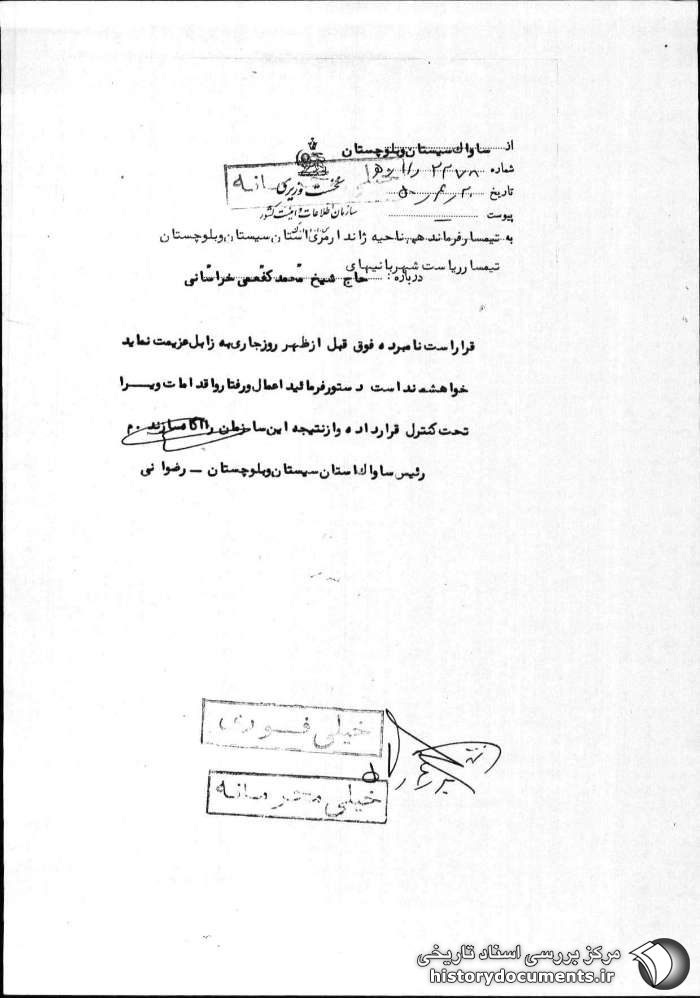 از ساواک سیستان و بلوچستان
شماره ۲۲۷۸
خیلی محرمانه
تاریخ ۲۰
نخست وزیری
سازمان اطلاعات و امنیت کشور
پیوست
به تیمسار فرماندهی ناحیه ژاندارمری استان سیستان و بلوچستان
تیمسار ریاست شهربانیهای
درباره : حاج شیخ محمد کفعمی خراسانی
قرار است نامبرده فوق قبل از ظهر روز جاری به زابل عزیمت نماید
خواهشمند است دستور فرمائید اعمال و رفتار و اقدامات ویرا
تحت کنترل قرار داده و از نتیجه این سازمان را آگاه سازند . م
رئیس ساواک استان سیستان و بلوچستان – رضوانی
خیلی فوری
خیلی محرمانه
مرکز بررسی اسناد تاریخی
historydocuments.ir